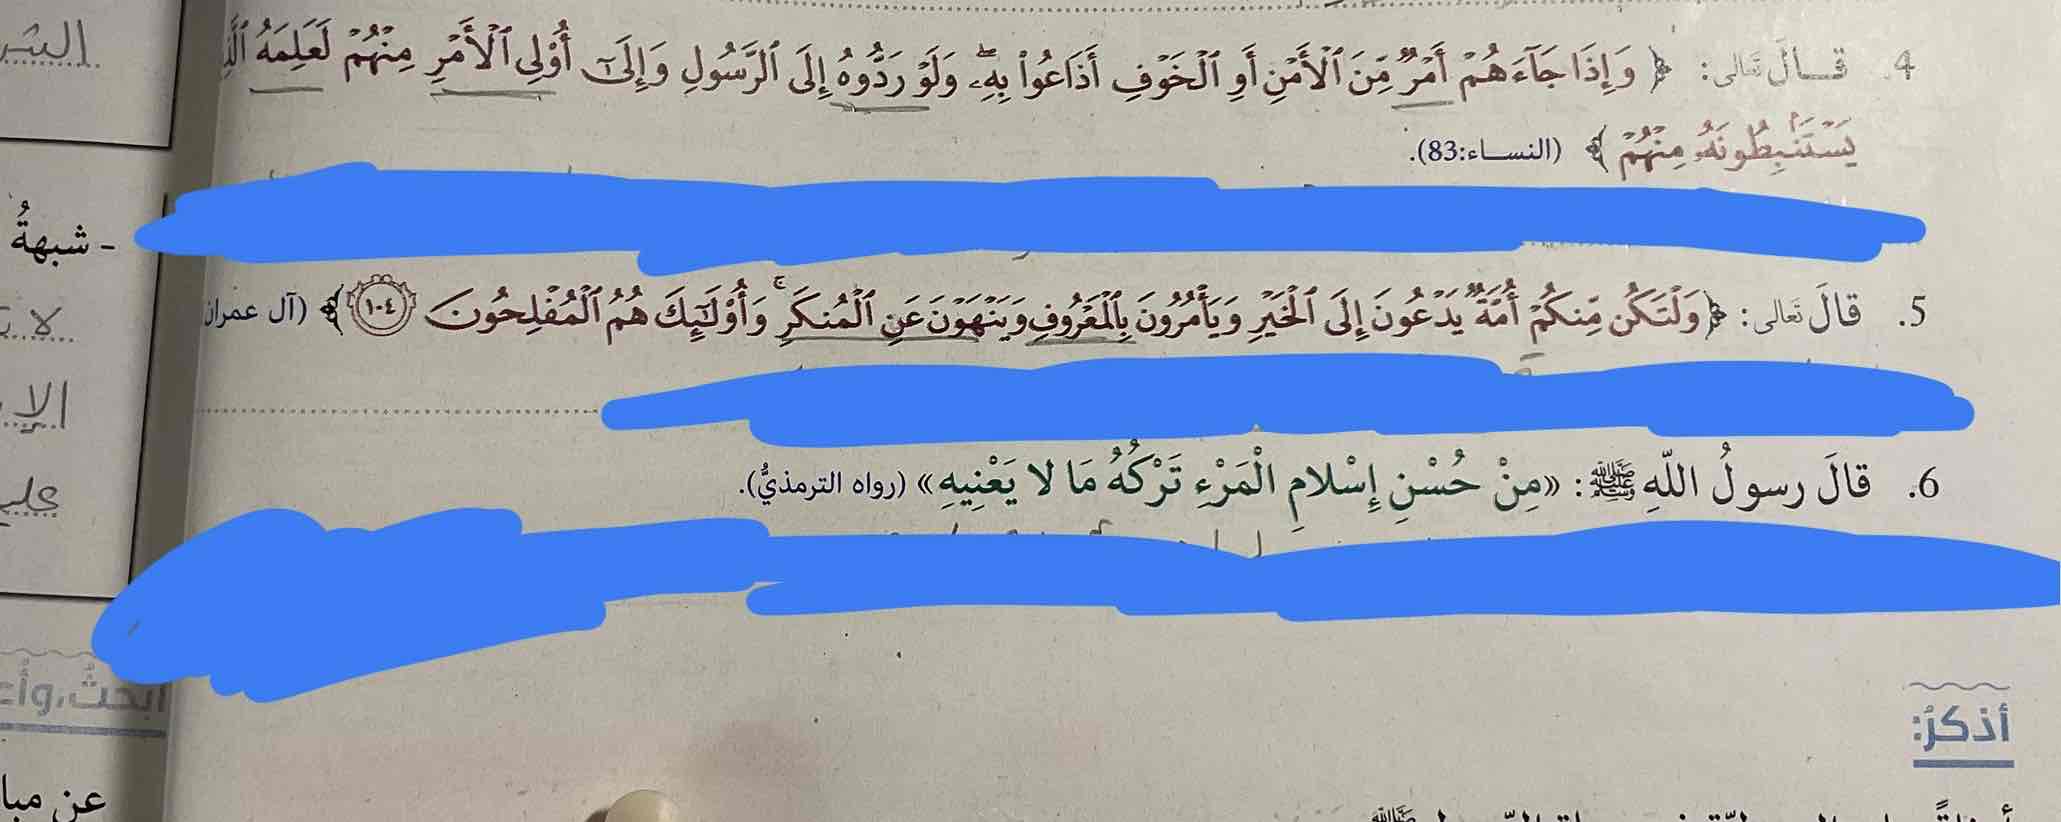 4. قــال تعالى: ﴿ وَإِذَا جَآءَهُمْ أَمْرٌ مِّنَ ٱلْأَمْنِ أَوِ ٱلْخَوْفِ أَذَاعُوا۟ بِهِۦ ۖ وَلَوْ رَدُّوهُ إِلَى ٱلرَّسُولِ وَإِلَىٰٓ أُو۟لِى ٱلْأَمْرِ مِنْهُمْ لَعَلِمَهُ
يَسْتَنۢبِطُونَهُۥ مِنْهُمْ ﴾ (النســاء:83).
5. قالَ تَعالى: ﴿ وَلْتَكُن مِّنكُمْ أُمَّةٌ يَدْعُونَ إِلَى ٱلْخَيْرِ وَيَأْمُرُونَ بِٱلْمَعْرُوفِ وَيَنْهَوْنَ عَنِ ٱلْمُنكَرِ ۚ وَأُو۟لَٰٓئِكَ هُمُ ٱلْمُفْلِحُونَ ١٠٤ ﴾ (آل عمران
6. قالَ رسولُ اللّهِ ﷺ: «مِنْ حُسْنِ إِسْلامِ الْمَرْءِ تَرْكُهُ مَا لا يَعْنِيهِ» (رواه الترمذيُّ).
أذكرُ:
- شبهةُ
عن